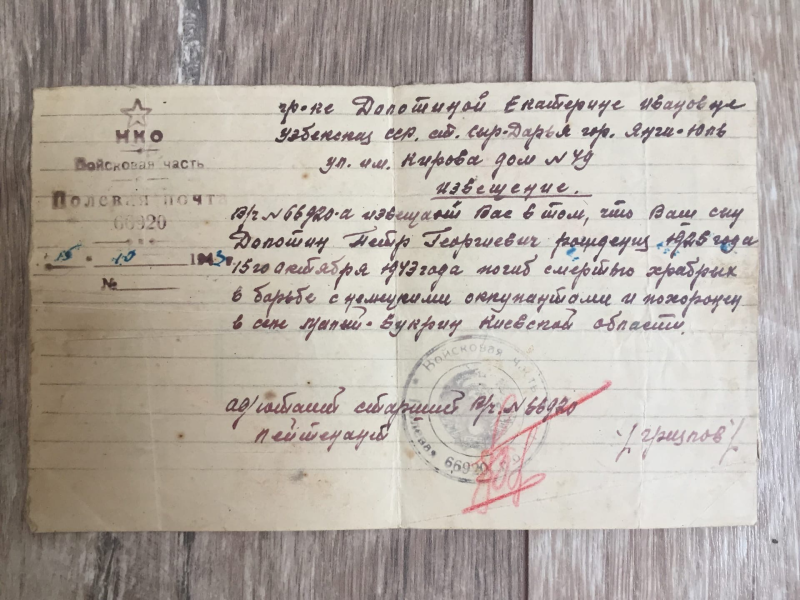 НКО
Войсковая часть
Полевая почта
66920
15 10 1943
№
гр-ке Долотиной Екатерине Ивановне
Узбекская ССР. ст. Сыр-Дарья гор. Янги-Юль
ул. им. Кирова дом N 49
Извещение.
В/ч N 66920-а извещает Вас в том, что Ваш сын
Долотин Петр Георгиевич рождения 1925 года
15го октября 1943 года погиб смертью храбрых
в борьбе с немецкими оккупантами и похоронен
в селе Малый-Букрин Киевской области.
адъютант старший В/ч. N 66920
лейтенант
Войсковая часть
66920